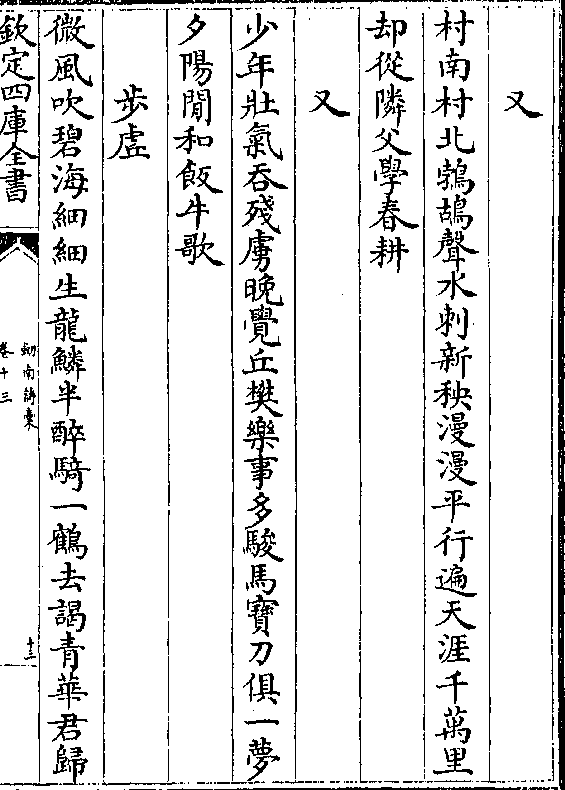 又
村南村北鵓鴣聲水刺新秧漫漫平行遍天涯千萬里
却從隣父學春耕
又
少年壯氣吞殘虜晚覺丘樊樂事多駿馬寶刀俱一夢
夕陽閒和飯牛歌
步虛
微風吹碧海細細生龍鱗半醉騎一鶴去謁青華君歸
欽定四庫全書
劒南詩稾
卷十三
十三